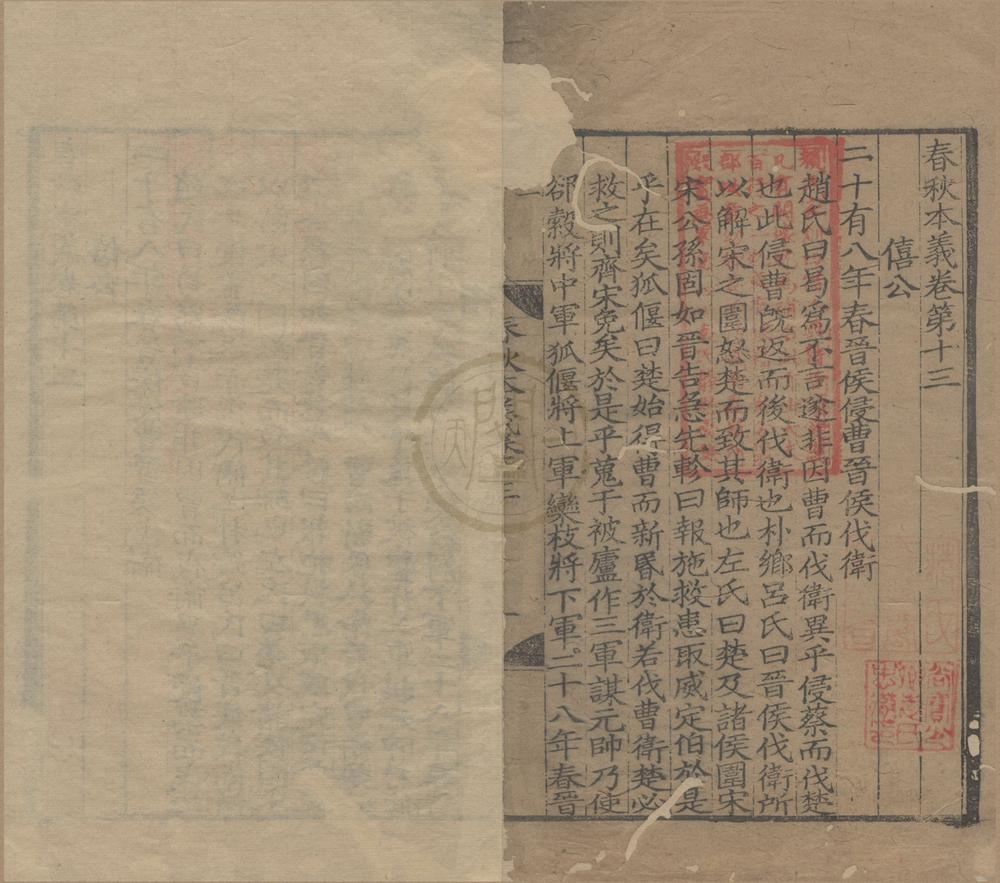 春秋本義卷第十三
僖公
二十有八年春晉侯侵曹晉侯伐衛
趙氏曰曷爲不言遂非因曹而伐衛異乎侵蔡而伐楚
也此侵曹旣返而後伐衛也朴鄉呂氏曰晉侯伐衛所
以解宋之圍怒楚而致其師也左氏曰楚及諸侯圍宋
宋公孫固如晉告急先軫曰報施救患取威定伯於是
乎在矣狐偃曰楚始得曹而新昬於衛若伐曹衛楚必
救之則齊宋免矣於是乎蒐于被廬作三軍謀元帥乃使
郤縠將中軍狐偃將上軍欒枝將下軍二十八年春晉
春秋本義卷十三